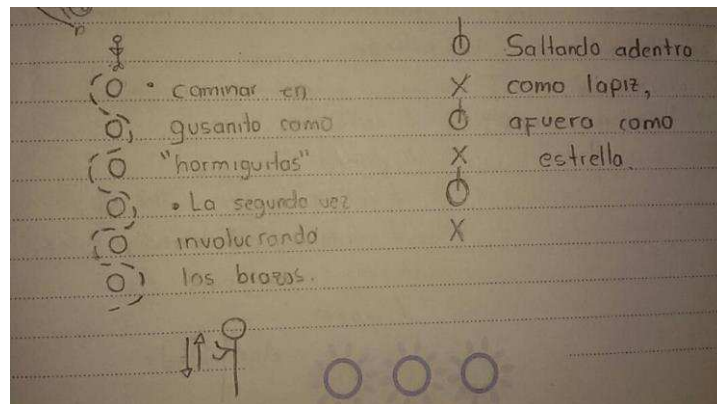 • caminar en
gusanito como
"hormiguitas"
• La segunda vez
involucrando
los brazos.
Saltando adentro
como lapiz,
afuera como
estrella.